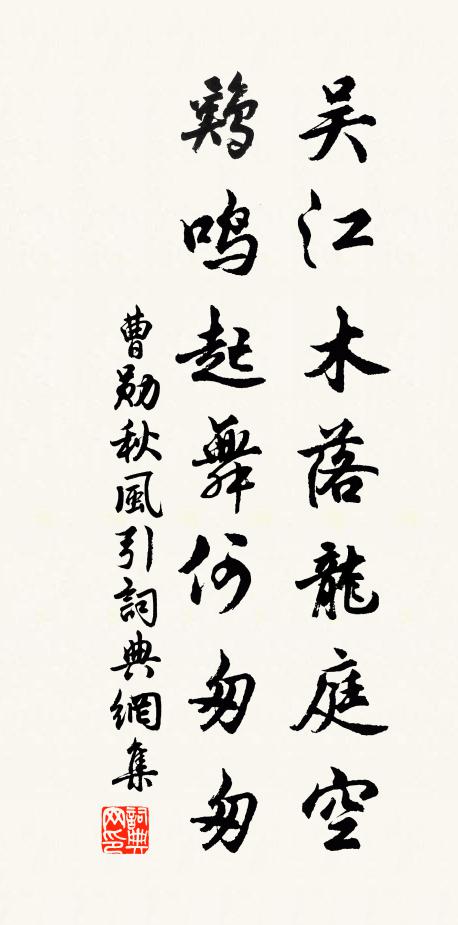 吴江木落龍庭空
鷄鳴起舞何匆匆
曹勛秋風引詞典網集
詞典网印